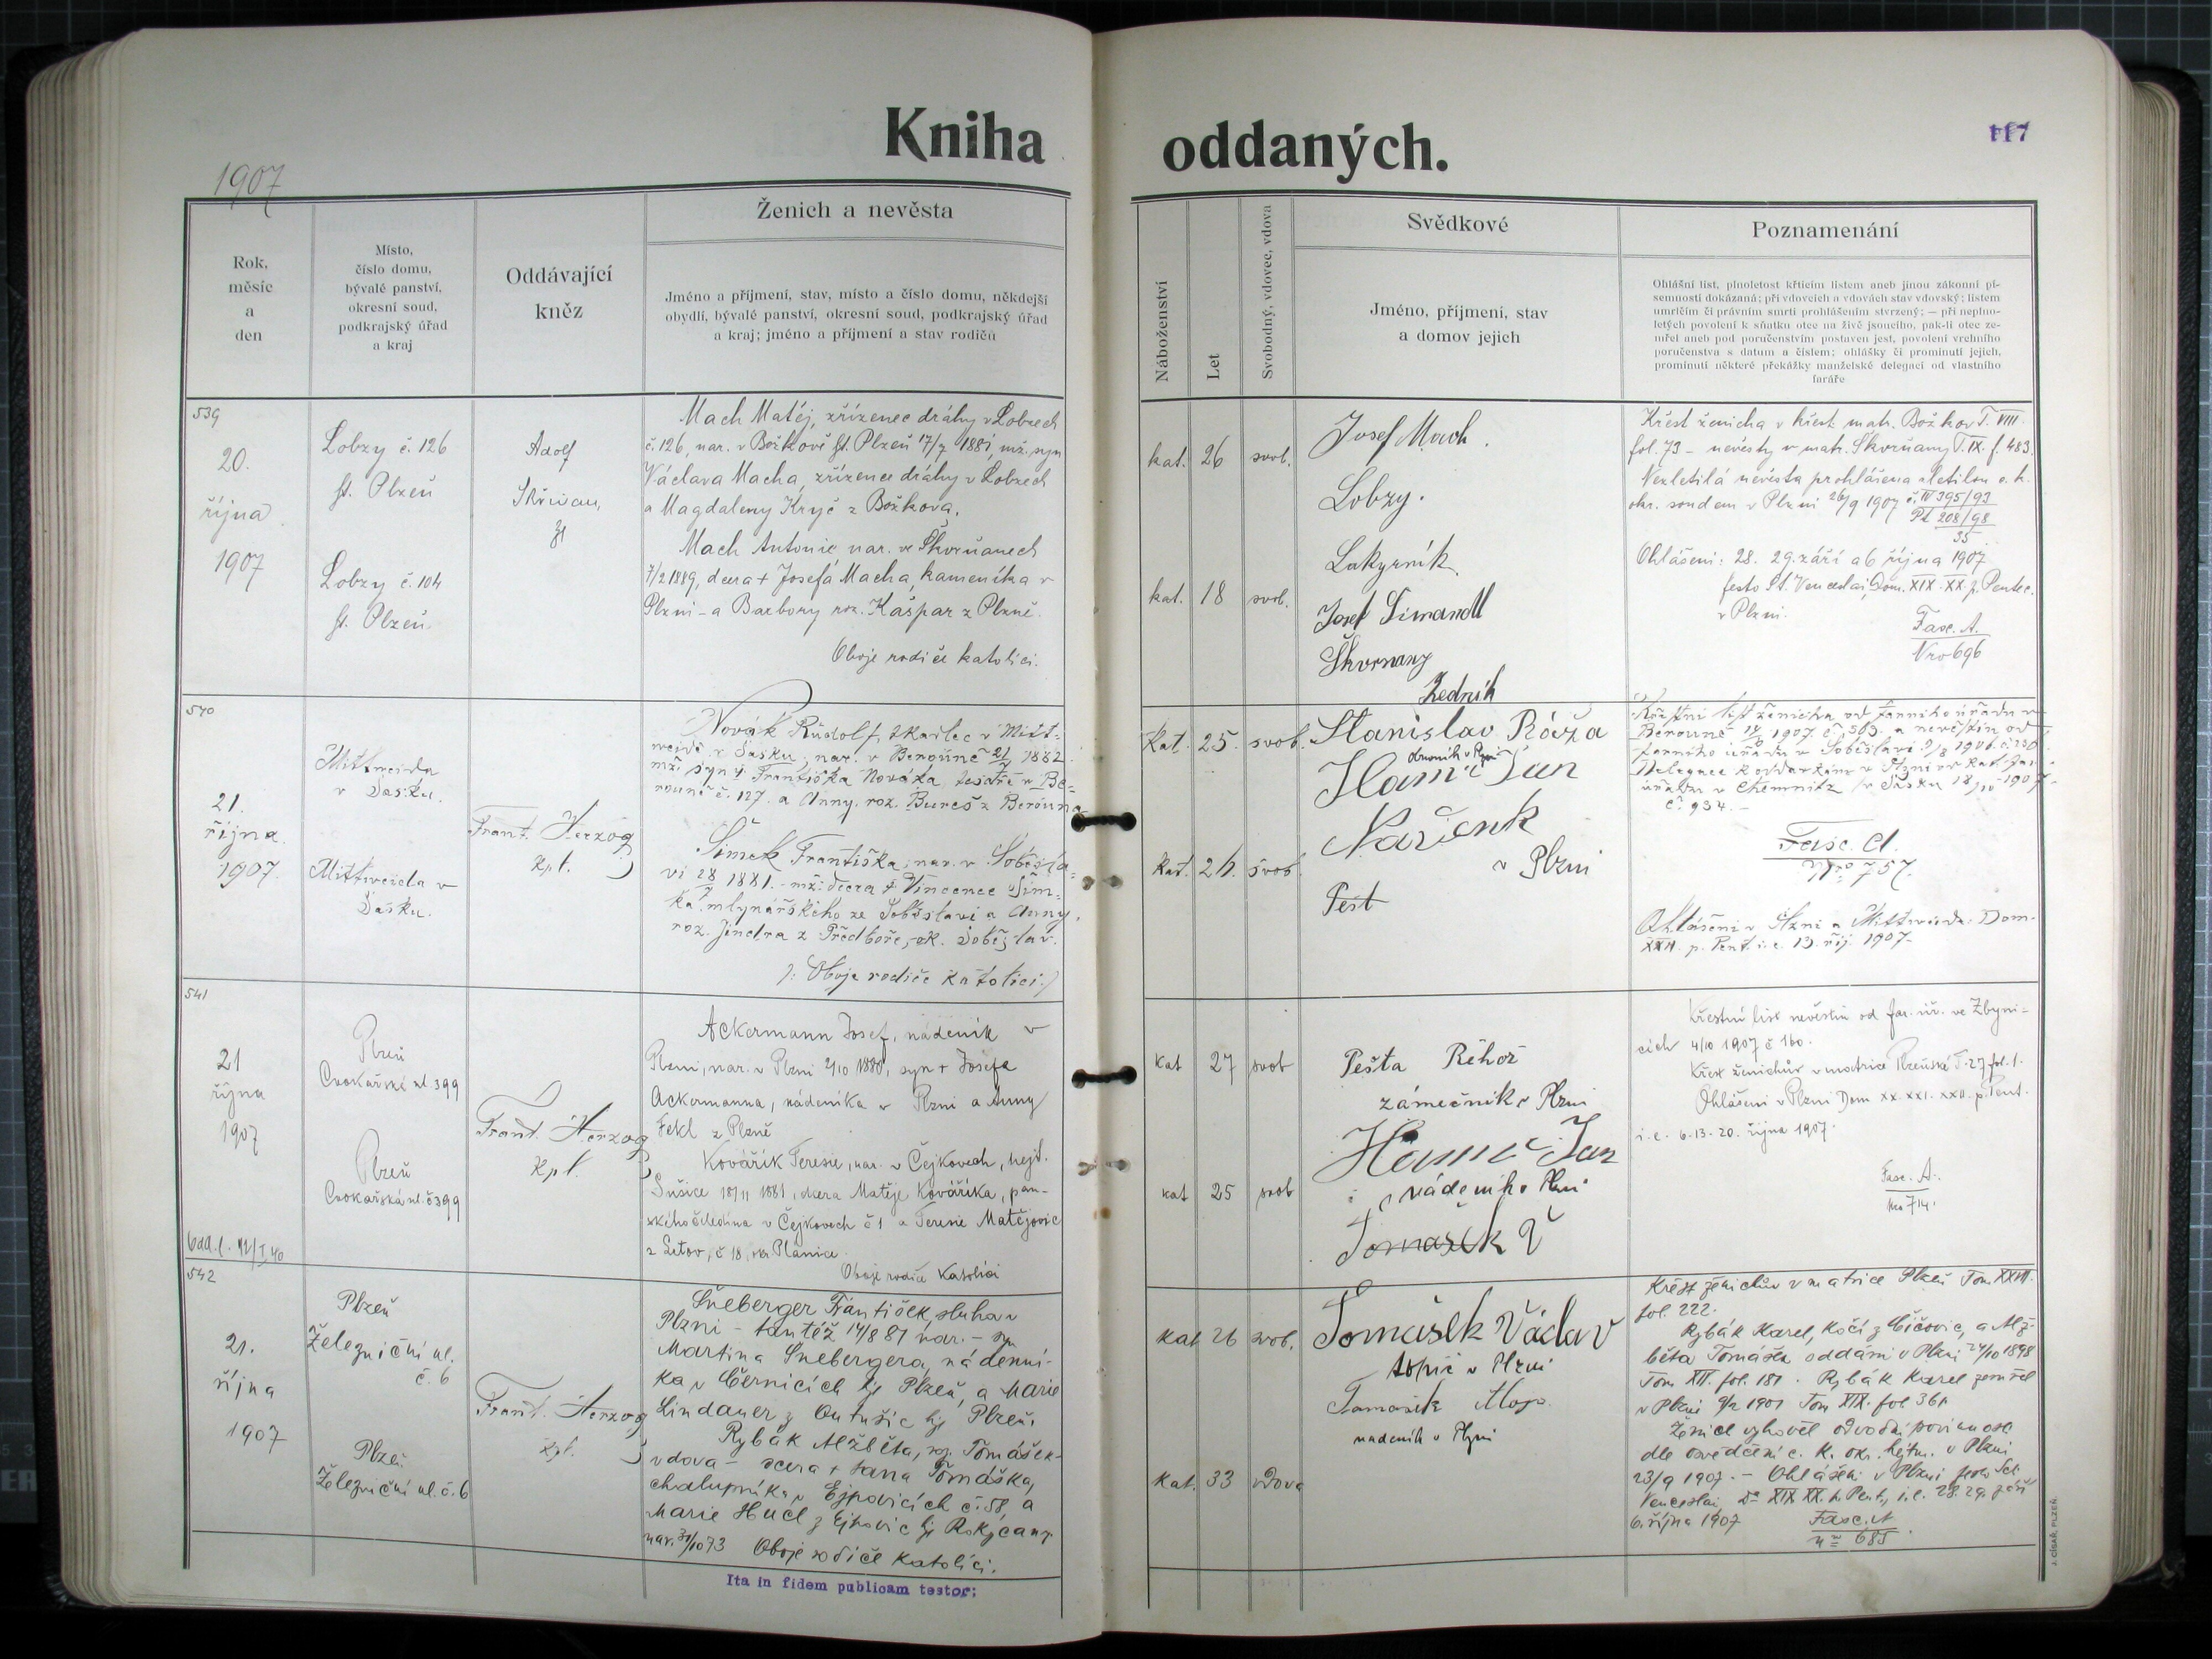 Kniha oddaných.
117
1907
Rok,
měsíc
a
den
Místo,
číslo domu,
bývalé panství,
okresní soud,
podkrajský úřad
a kraj
Oddávající
kněz
Ženich a nevěsta
Jméno a příjmení, stav, místo a číslo domu, někdejší
obydlí, bývalé panství, okresní soud, podkrajský úřad
a kraj; jméno a příjmení a stav rodičů
Náboženství
Let
Svobodný, vdovec, vdova
Svědkové
Jméno, příjmení, stav
a domov jejich
Poznamenání
Ohlášní list, plnoletost křticím listem aneb jinou zákonní pí-
semností dokázaná; při vdovcích a vdovách stav vdovský; listem
umrlčím či právním smrti prohlášením stvrzený; — při neplno-
letých povolení k sňatku otce na živě jsoucího, pak-li otec ze-
mřel aneb pod poručenstvím postaven jest, povolení vrchního
poručenstva s datum a číslem; ohlášky či prominutí jejich,
prominutí některé překážky manželské delegací od vlastního
faráře
539
20.
října
1907
Lobzy č. 126
Plzeň
Lobzy č. 104
Plzeň
Adolf
Mach Matěj, zřízenec dráhy v Lobzech
č. 126, nar. v Božkově Plzeň 17/7 1881, mž. syn
Václava Macha, zřízence dráhy v Lobzech
a Magdaleny Kryč z Božkova.
Mach Antonie nar. ve Skvrňanech
7/2 1889, dcera + Josefa Macha, kameníka v
Plzni - a Barbory roz. Kašpar z Plzně.
Oboje rodiče katolíci.
kat. 26 svob.
kat. 18 svob.
Josef Mach.
Lobzy.
Lakyrník
Josef Simandl
Skvrnany
Zedník
Křest ženicha v křest. matr. Božkov T. VIII.
fol. 73 - nevěsty v matr. Skvrňany T. IX. f. 483.
Nezletilá nevěsta prohlášena zletilou c. k.
okr. soudem v Plzni 26/9 1907 č. IV 395/93
208/98
35
Ohlášení: 28. 29. září a 6 října 1907
festo St. Venceslai, Dom. XIX. XX p. Pentec.
v Plzni.
Fasc. A.
Nro 696
540
21.
října.
1907.
Mittweida
v Sasku.
Mittweida v
Sasku.
Frant. Herzog
kpl.
Novák Rudolf, tkadlec v Mitt-
weidě v Sasku, nar. v Berouně 1882
mž. syn Františka Nováka v Be-
rouně č. 127. a Anny, roz. Bureš z Berouna
Šimek Františka, nar. v Soběsla-
vi 1881. - mž. dcera + Vincence Šim-
ka, mlynářského ze Soběslavi a Anny,
roz. Jindra z Předboře, ok. Soběslav.
/: Oboje rodiče katolíci:/
kat. 25. svob.
kat. svob.
Stanislav
v Plzni
Křestní list ženicha od farního úřadu v
Berouně 1907. č. 563. a nevěstin od
farního úřadu v Soběslavi 1906. č. 230
Delegace k oddavkám v Plzni od kat. far.
úřadu v Chemnitz v Sasku 18/10 1907
č. 934. -
Fasc. A.
Nro 757.
Ohlášení v Plzni a Mittweida: Dom.
XXII. p. Pent. i. e. 13. říj. 1907.
541
21
října
1907
Odd. l. 12/I 40
Plzeň
Cvokařská ul. 399
Plzeň
Cvokařská ul. č 399
Frant. Herzog
kpl.
Ackermann Josef, nádeník v
Plzni, nar. v Plzni 2/10 1880, syn + Josefa
Ackermanna, nádeníka v Plzni a Anny
Fekl z Plzně
Kovářík Teresie, nar. v Čejkovech, hejt.
Sušice 18/11 1881, dcera Matěje Kováříka, pan-
ského čeledína v Čejkovech č 1 a Teresie Matějovic
z Letov, č 18, okr. Plánice
Oboje rodiče katolíci
kat 27 svob
kat 25 svob
Pešta Řehoř
zámečník v Plzni
Jan
nádeník v Plzni
Tomášek V
Křestní list nevěstin od far. úř. ve Zbyni-
cích 4/10 1907 č 160.
Křest ženichův v matrice Plzeňské T. 27 fol. 1.
Ohlášení v Plzni Dom XX. XXI. XXII. p. Pent.
i. e. 6. 13. 20. října 1907.
Fasc. A.
No 714.
542
21.
října
1907
Plzeň
Železniční ul.
č. 6
Plzeň
Železniční ul. č. 6
Frant. Herzog
kpl.
Šneberger František, sluha v
Plzni - tamtéž 14/8 81 nar. - syn
Martina Šnebergera, nádenní-
ka v Černicích hj Plzeň, a Marie
Lindauer z Outušic hj Plzeň.
Rybák Alžběta, roz. Tomášek -
vdova - dcera + Jana Tomáška,
chalupníka v Ejpovicích č. 58, a
Marie Hucl z Ejpovic hj Rokycany
nar. 31/10 73 Oboje rodiče katolíci.
kat 26 svob.
kat. 33 vdova
Tomášek Václav
topič v Plzni
nadeník v Plzni
Křest ženichův v matrice Plzeň Tom XXVII.
fol. 222.
Rybák Karel, kočí z Čičovic, a Alž-
běta Tomášek oddáni v Plzni 24/10 1898
Tom XII. fol. 187. Rybák Karel zemřel
v Plzni 9/2 1901 Tom XIX. fol 361
Ženich vyhověl odvodní povinnosti
dle osvědčení c. k. okr. hejtm. v Plzni
23/9 1907. - Ohlášení v Plzni festo Sct.
Venceslai, XIX XX. p. Pent., i. e. 28. 29. září
6. října 1907
Fasc. A
no 685
Ita in fidem publicam testor:
J. CÍSAŘ, PLZEŇ.